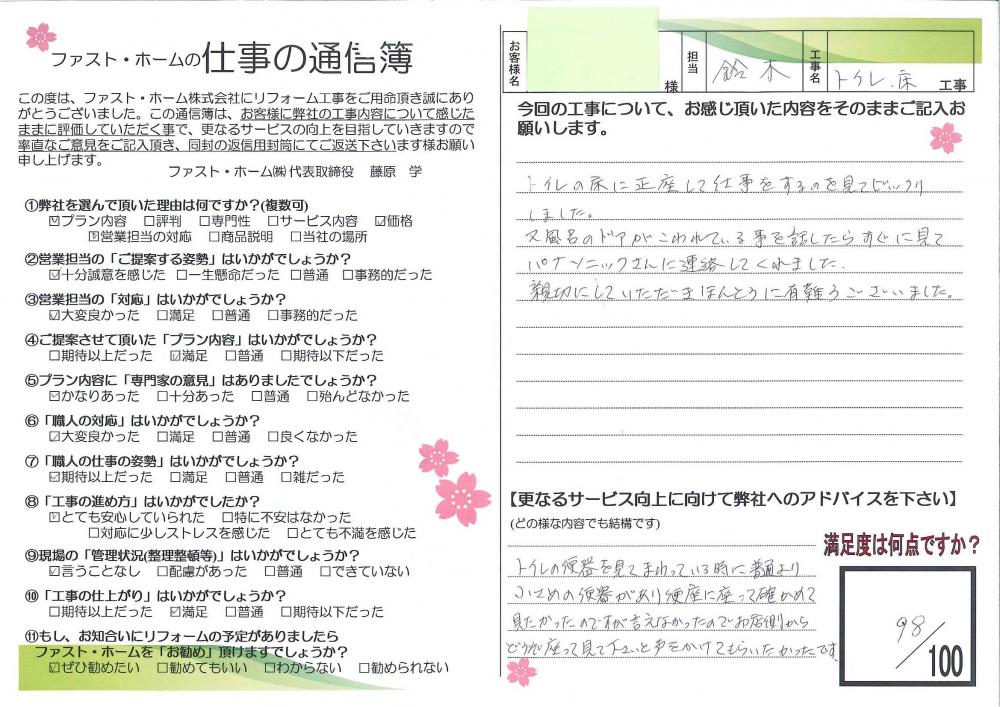 ファスト・ホームの仕事の通信簿
この度は、ファスト・ホーム株式会社にリフォーム工事をご用命頂き誠にあり
がとうございました。この通信簿は、お客様に弊社の工事内容について感じた
ままに評価していただく事で、更なるサービスの向上を目指していきますので
率直なご意見をご記入頂き、同封の返信用封筒にてご返送下さいます様お願い
申し上げます。
ファスト・ホーム㈱代表取締役 藤原 学
①弊社を選んで頂いた理由は何ですか?(複数可)
☑プラン内容 □評判 □専門性 □サービス内容 ☑価格
☑営業担当の対応 □商品説明 □当社の場所
②営業担当の「ご提案する姿勢」はいかがでしょうか?
☑十分誠意を感じた □一生懸命だった □普通 □事務的だった
③営業担当の「対応」はいかがでしょうか?
☑大変良かった □満足 □普通 □事務的だった
④ご提案させて頂いた「プラン内容」はいかがでしょうか?
□期待以上だった ☑満足 □普通 □期待以下だった
⑤プラン内容に「専門家の意見」はありましたでしょうか?
☑かなりあった □十分あった □普通 □殆んどなかった
⑥「職人の対応」はいかがでしょうか?
☑大変良かった □満足 □普通 □良くなかった
⑦「職人の仕事の姿勢」はいかがでしょうか?
☑期待以上だった □満足 □普通 □雑だった
⑧「工事の進め方」はいかがでしたか?
☑とても安心していられた □特に不安はなかった
□対応に少しストレスを感じた □とても不満を感じた
⑨現場の「管理状況(整理整頓等)」はいかがでしょうか?
☑言うことなし □配慮があった □普通 □できていない
⑩「工事の仕上がり」はいかがでしょうか?
□期待以上だった ☑満足 □普通 □期待以下だった
⑪もし、お知合いにリフォームの予定がありましたら
ファスト・ホームを「お勧め」頂けますでしょうか?
☑ぜひ勧めたい □勧めてもいい □わからない □勧められない
お客様名 様 担当 鈴木 工事名 トイレ、床 工事
今回の工事について、お感じ頂いた内容をそのままご記入お
願いします。
トイレの床に正座して仕事をするのを見てビックリ
しました。
又風呂のドアがこわれている事を話したらすぐに見て
パナソニックさんに連絡してくれました。
親切にしていただきほんとうに有難うございました。
【更なるサービス向上に向けて弊社へのアドバイスを下さい】
(どの様な内容でも結構です)
満足度は何点ですか?
トイレの便器を見てまわっている時に普通より
小さめの便器があり便座に座って確かめて
見たかったのですが言えなかったのでお店側から
どうぞ座って見て下さいと声をかけてもらいたかったです
98/100